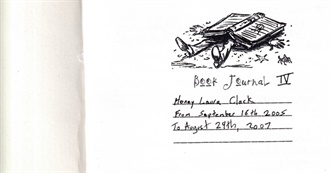 Book Journal IV
Henry Laura Clark
From September 16th 2005
To August 29th, 2007